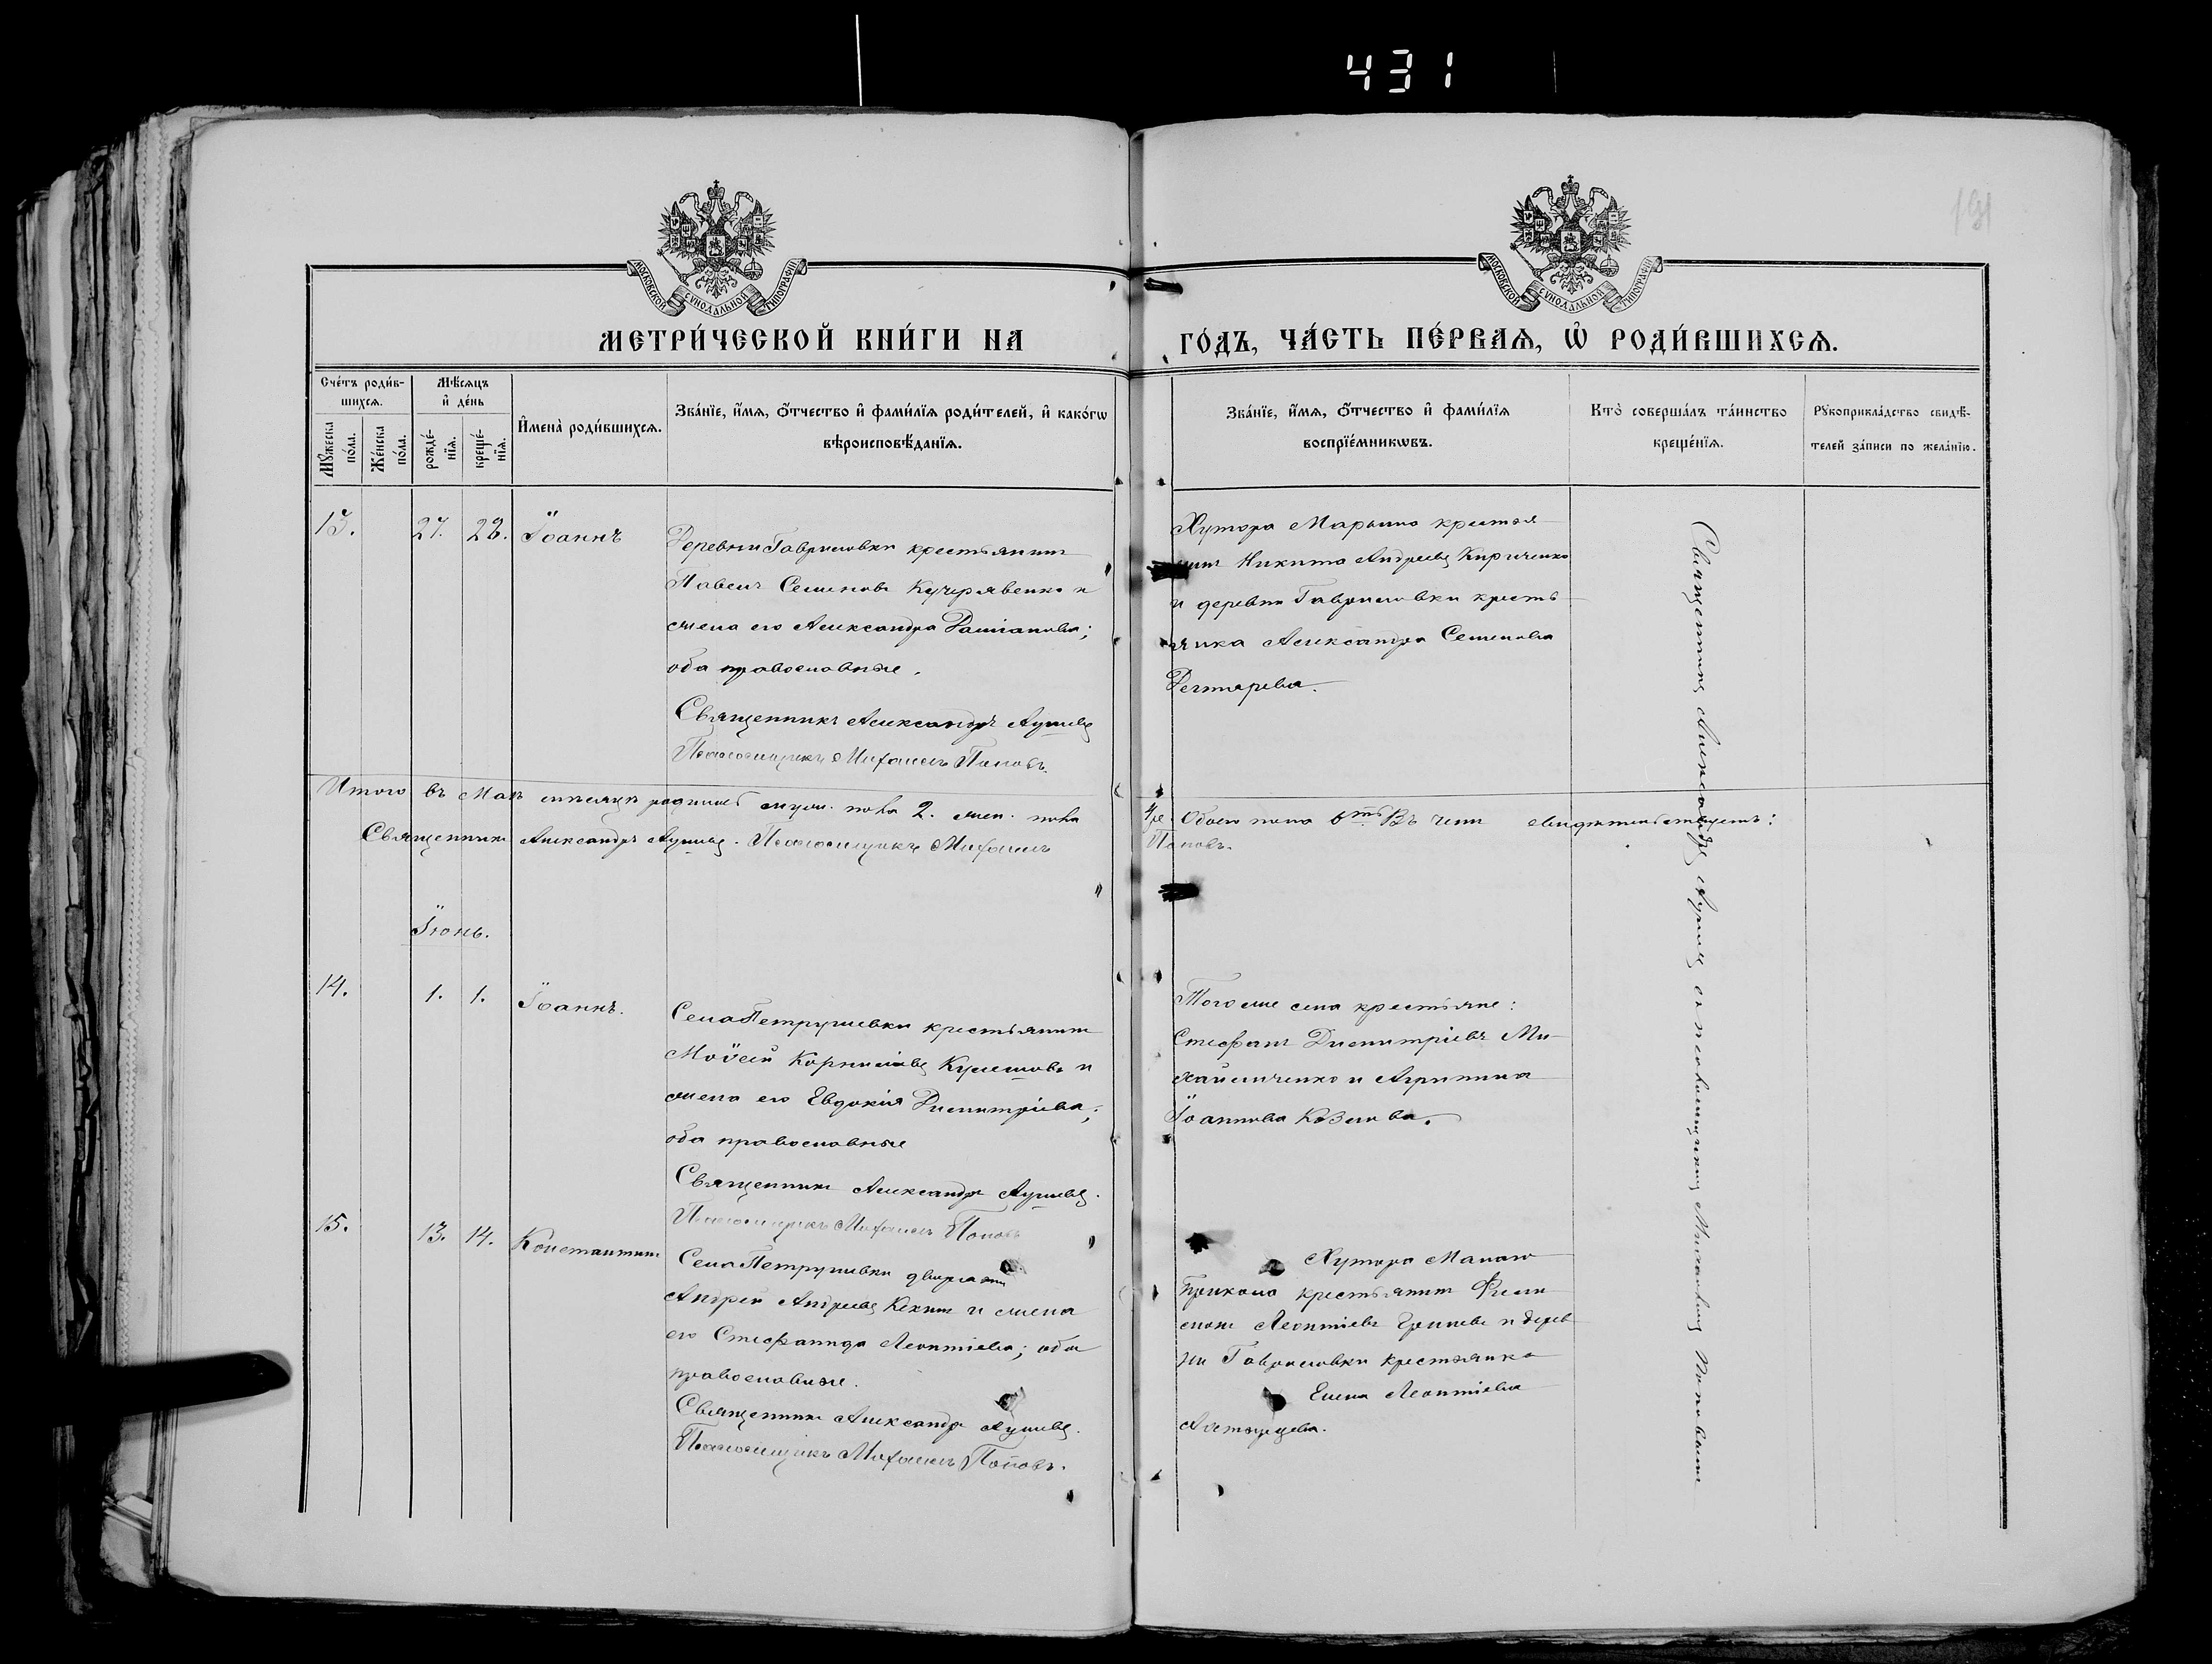 431
191
МОСКОВСКОЙ СѴНОДАЛЬНОЙ ТИПОГРАФІИ
МОСКОВСКОЙ СѴНОДАЛЬНОЙ ТИПОГРАФІИ
МЕТРИ́ЧЕСКОЙ КНИ́ГИ НА ГО́ДЪ, ЧА́СТЬ ПЕ́РВАѦ, Ѡ҆ РОДИ́ВШИХСѦ.
Сче́тъ роди́в-
шихсѧ.
Мꙋ́жеска
по́ла.
Же́нска
по́ла.
Мѣ́сѧцъ
и҆ де́нь
рожде́-
нїѧ.
креще́-
нїѧ.
И҆мена̀ роди́вшихсѧ.
Зва́нїе, и҆́мѧ, ѻ҆́тчество и҆ фами́лїѧ роди́телей, и҆ како́гѡ
вѣроисповѣ́данїѧ.
Зва́нїе, и҆́мѧ, ѻ҆́тчество и҆ фами́лїѧ
воспрїе́мникѡвъ.
Кто̀ соверша́лъ та́инство
креще́нїѧ.
Рꙋкоприкла́дство свидѣ́-
телей за́писи по жела́нїю.
13. 27. 28. Іоаннъ
Деревни Гавриловки крестьянинъ
Павелъ Семеновъ Кучерявенко и
жена его Александра Даміанова;
оба православные.
Священникъ Александръ
Псаломщикъ Михаилъ Поповъ.
Хутора Марьино крестья
нинъ Никита Андреевъ Кириченко
и деревни Гавриловки кресть
янка Александра Семенова
Дегтярева.
Итого въ Маѣ мѣсяцѣ родилось муж. пола 2. жен. пола
4ре. Обоего пола 6ть. Въ чемъ свидѣтельствуемъ:
Священникъ Александръ Псаломщикъ Михаилъ
Поповъ.
Іюнь.
14. 1. 1. Іоаннъ.
Села Петрушевки крестьянинъ
Моѵсей Корниліевъ Кулешовъ и
жена его Евдокія Димитріева;
оба православные
Священникъ Александръ
Псаломщикъ Михаилъ Поповъ
Того же села крестьяне:
Стефанъ Димитріевъ Ми-
хайличенко и Агрипина
Іоаннова Козлова.
15. 13. 14. Константинъ
Села Петрушевки дворянинъ
Андрей Андреевъ и жена
его Стефанида Леонтіева; оба
православные.
Священникъ Александръ
Псаломщикъ Михаилъ Поповъ.
Хутора Малаго
Прикола крестьянинъ Фили
монъ Леонтіевъ и дерев
ни Гавриловки крестьянка
Елена Леонтіева
Священникъ Александръ съ псаломщикомъ Михаиломъ Поповымъ